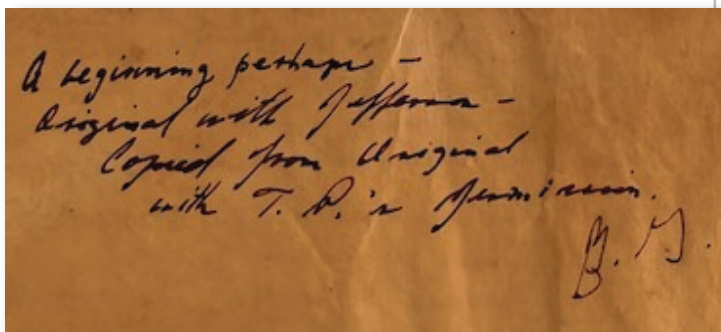 A beginning perhaps -
Original with Jefferson -
Copied from Original
with T. P.'s permission.
B. F.